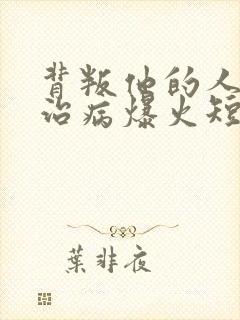 背叛他的人
治病爆火短
葉非夜